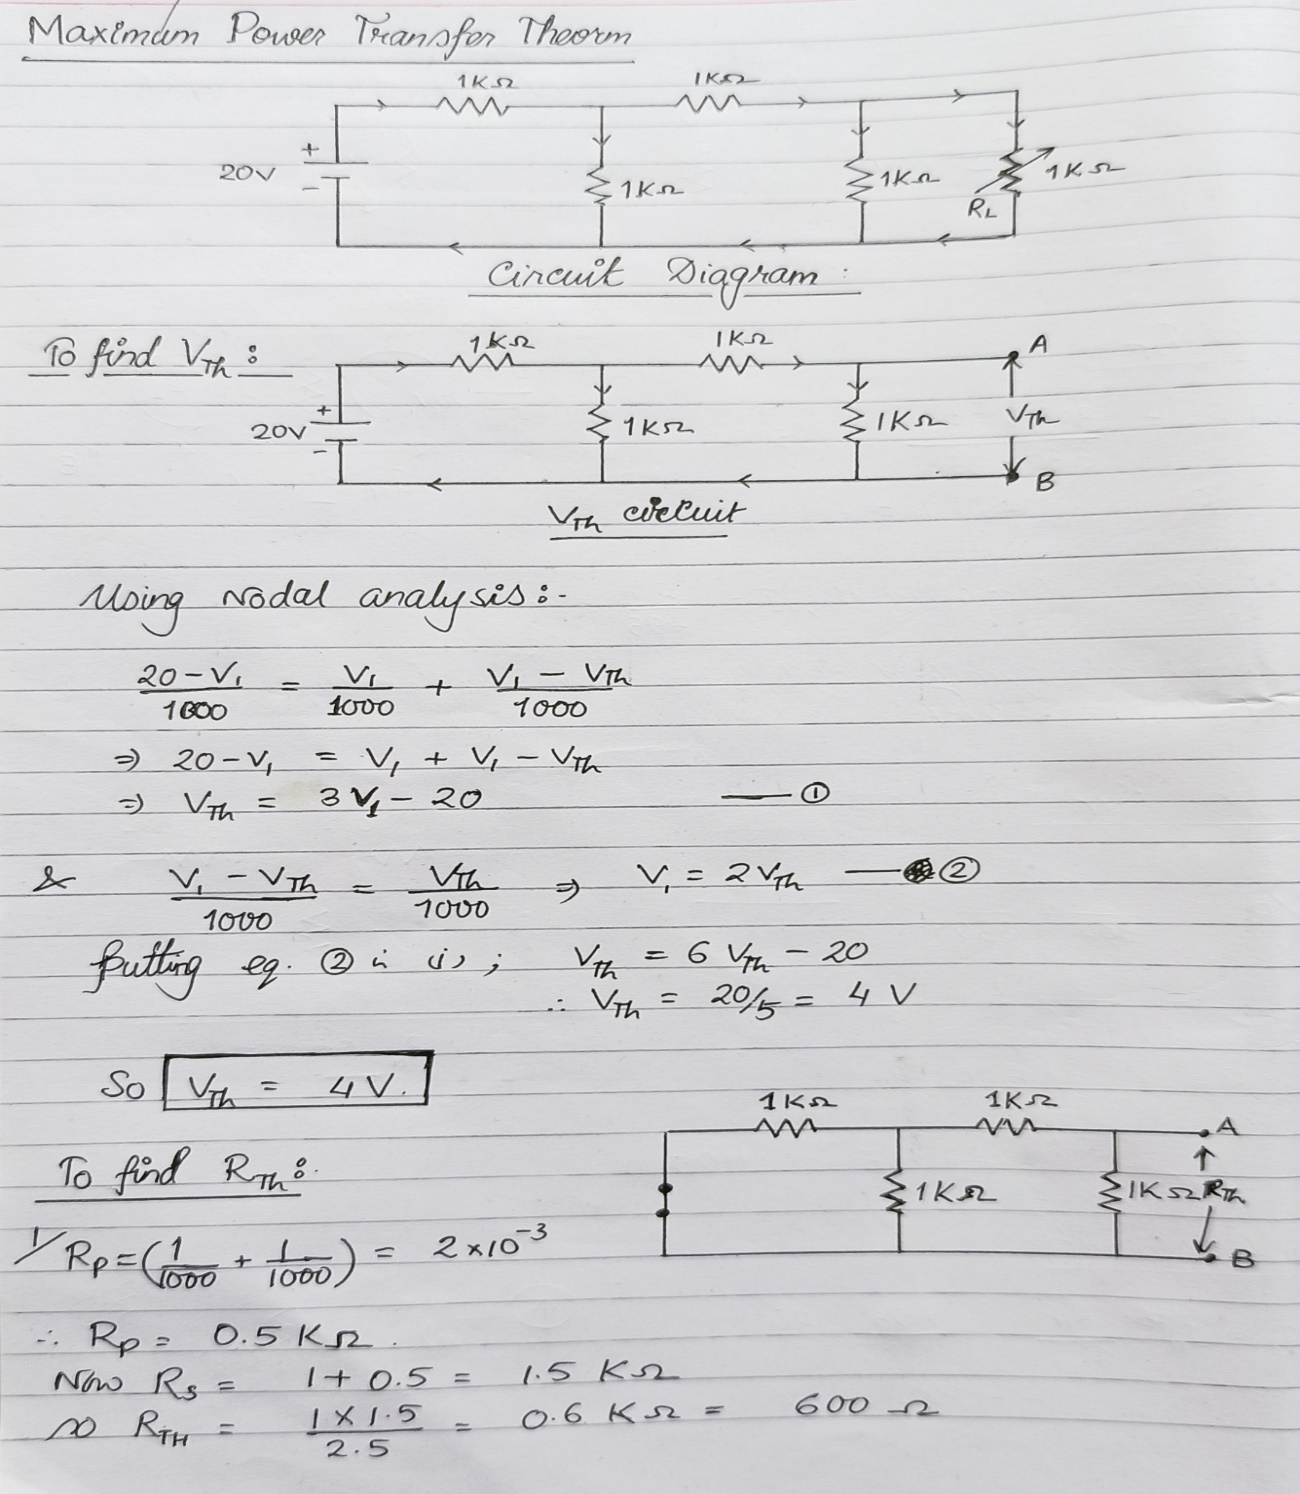 Maximum Power Transfer Theorm
1KΩ 1KΩ
+
20V
-
1KΩ 1KΩ 1KΩ
RL
Circuit Diagram :
To find VTh :
1KΩ 1KΩ A
+
20V
-
1KΩ 1KΩ VTh
B
VTh circuit
Using Nodal analysis :-
(20 - V1)/1000 = V1/1000 + (V1 - VTh)/1000
⇒ 20 - V1 = V1 + V1 - VTh
⇒ VTh = 3V1 - 20 —— ①
& (V1 - VTh)/1000 = VTh/1000 ⇒ V1 = 2VTh —— ②
Putting eq. ② in (i) ; VTh = 6 VTh - 20
∴ VTh = 20/5 = 4 V
So VTh = 4V.
1KΩ 1KΩ A
To find RTh :.
1KΩ 1KΩ RTh
B
1/Rp = (1/1000 + 1/1000) = 2×10⁻³
∴ Rp = 0.5 KΩ.
Now Rs = 1 + 0.5 = 1.5 KΩ
so RTH = (1 × 1.5)/2.5 = 0.6 KΩ = 600 Ω